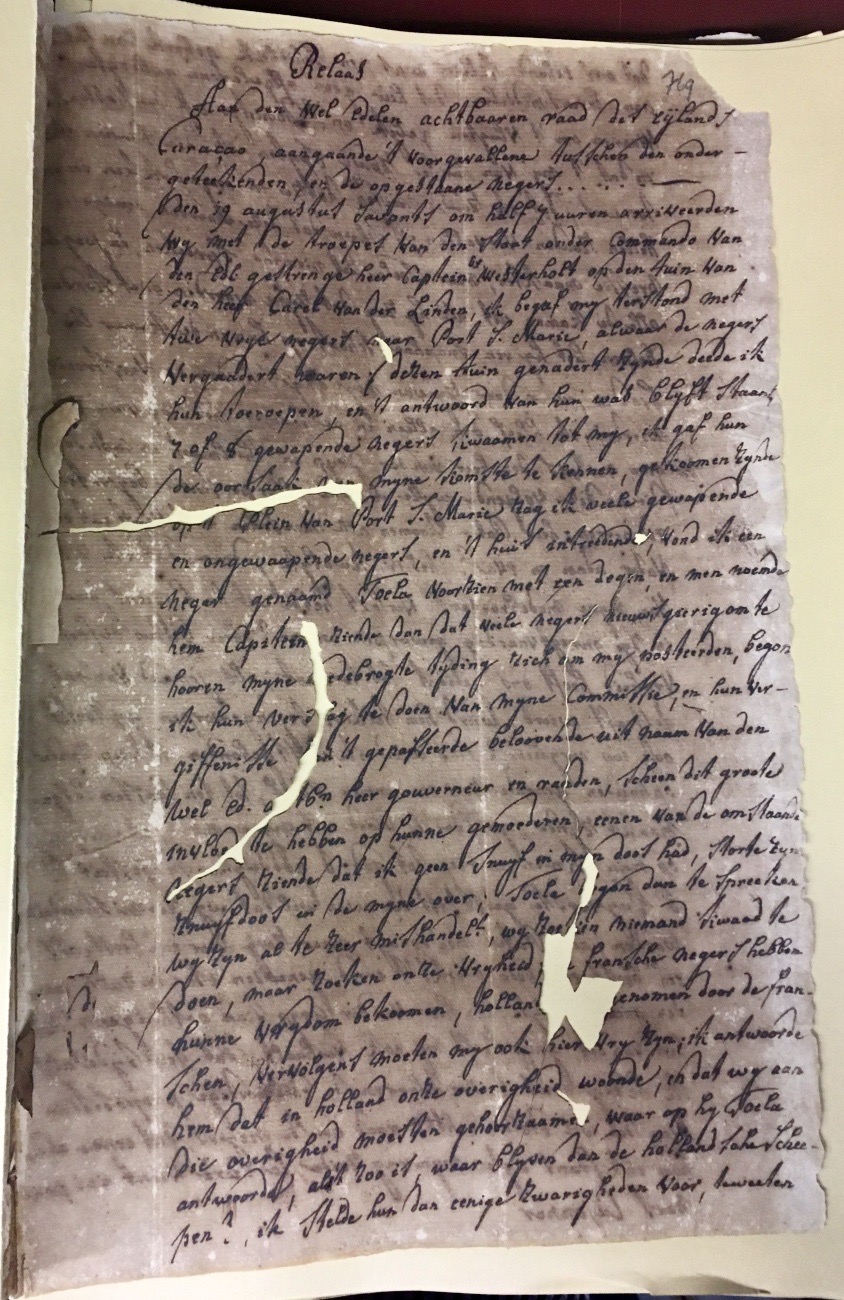 Relaas
719
Aan den Wel Edelen achtbaaren raad des eylands
Curaçao, aangaande 't voorgevallene tusschen den onder-
geteekenden, en de opgestaane negers......
den 19 augustus savonts om half 7 uuren arriveerden
wy met de troepes van den staat onder Commando van
den Edl gestrenge heer Captein Westerholt op den tuin van
den heer Carel van der Linden, ik begaf my terstond met
twe vrye negers naar Port S. Marie, alwaar de negers
vergaadert waren; dezen tuin genadert zynde deede ik
hun toeroepen, en 't antwoord van hun was blyft staan,
7 of 8 gewapende negers kwaamen tot my, ik gaf hun
de oorsaak van myne komste te kennen, gekoomen zynde
op 't Plein van Port S. Marie zag ik veele gewapende
en ongewaapende negers, en 't huis intredende, vond ik een
neger genaamd Toela voorzien met een degen, en men noemde
hem Captein ziende dan dat veele negers nieuwsgierig om te
hooren myne medebrogte tyding zich om my posteerden, begon
ik hun verslag te doen van myne Commissie, en hun ver-
giffenisse 't gepasseerde beloovende uit naam van den
Wel Ed. heer gouverneur en raaden, scheen dit groote
invloed te hebben op hunne gemoederen, eenen van de omstaande
negers ziende dat ik geen snuyf in myn doos had, storte zyn
snuyfdoos in de myne over; Toela begon dan te spreeken
wy zyn al te zeer mishandelt, wy zoeken niemand kwaad te
doen, maar zoeken onze vryheid, de fransche negers hebben
hunne vrydom bekoomen, holland genomen door de fran-
schen, vervolgens moeten wy ook hier vry zyn; ik antwoorde
hem dat in holland onze overigheid woonde, en dat wy aan
die overigheid moesten gehoorzaamen, waar op hy Toela
antwoorde, als 't zoo is, waar blyven dan de hollandsche schee-
pen?, ik stelde hun dan eenige zwarigheden voor, teweeten